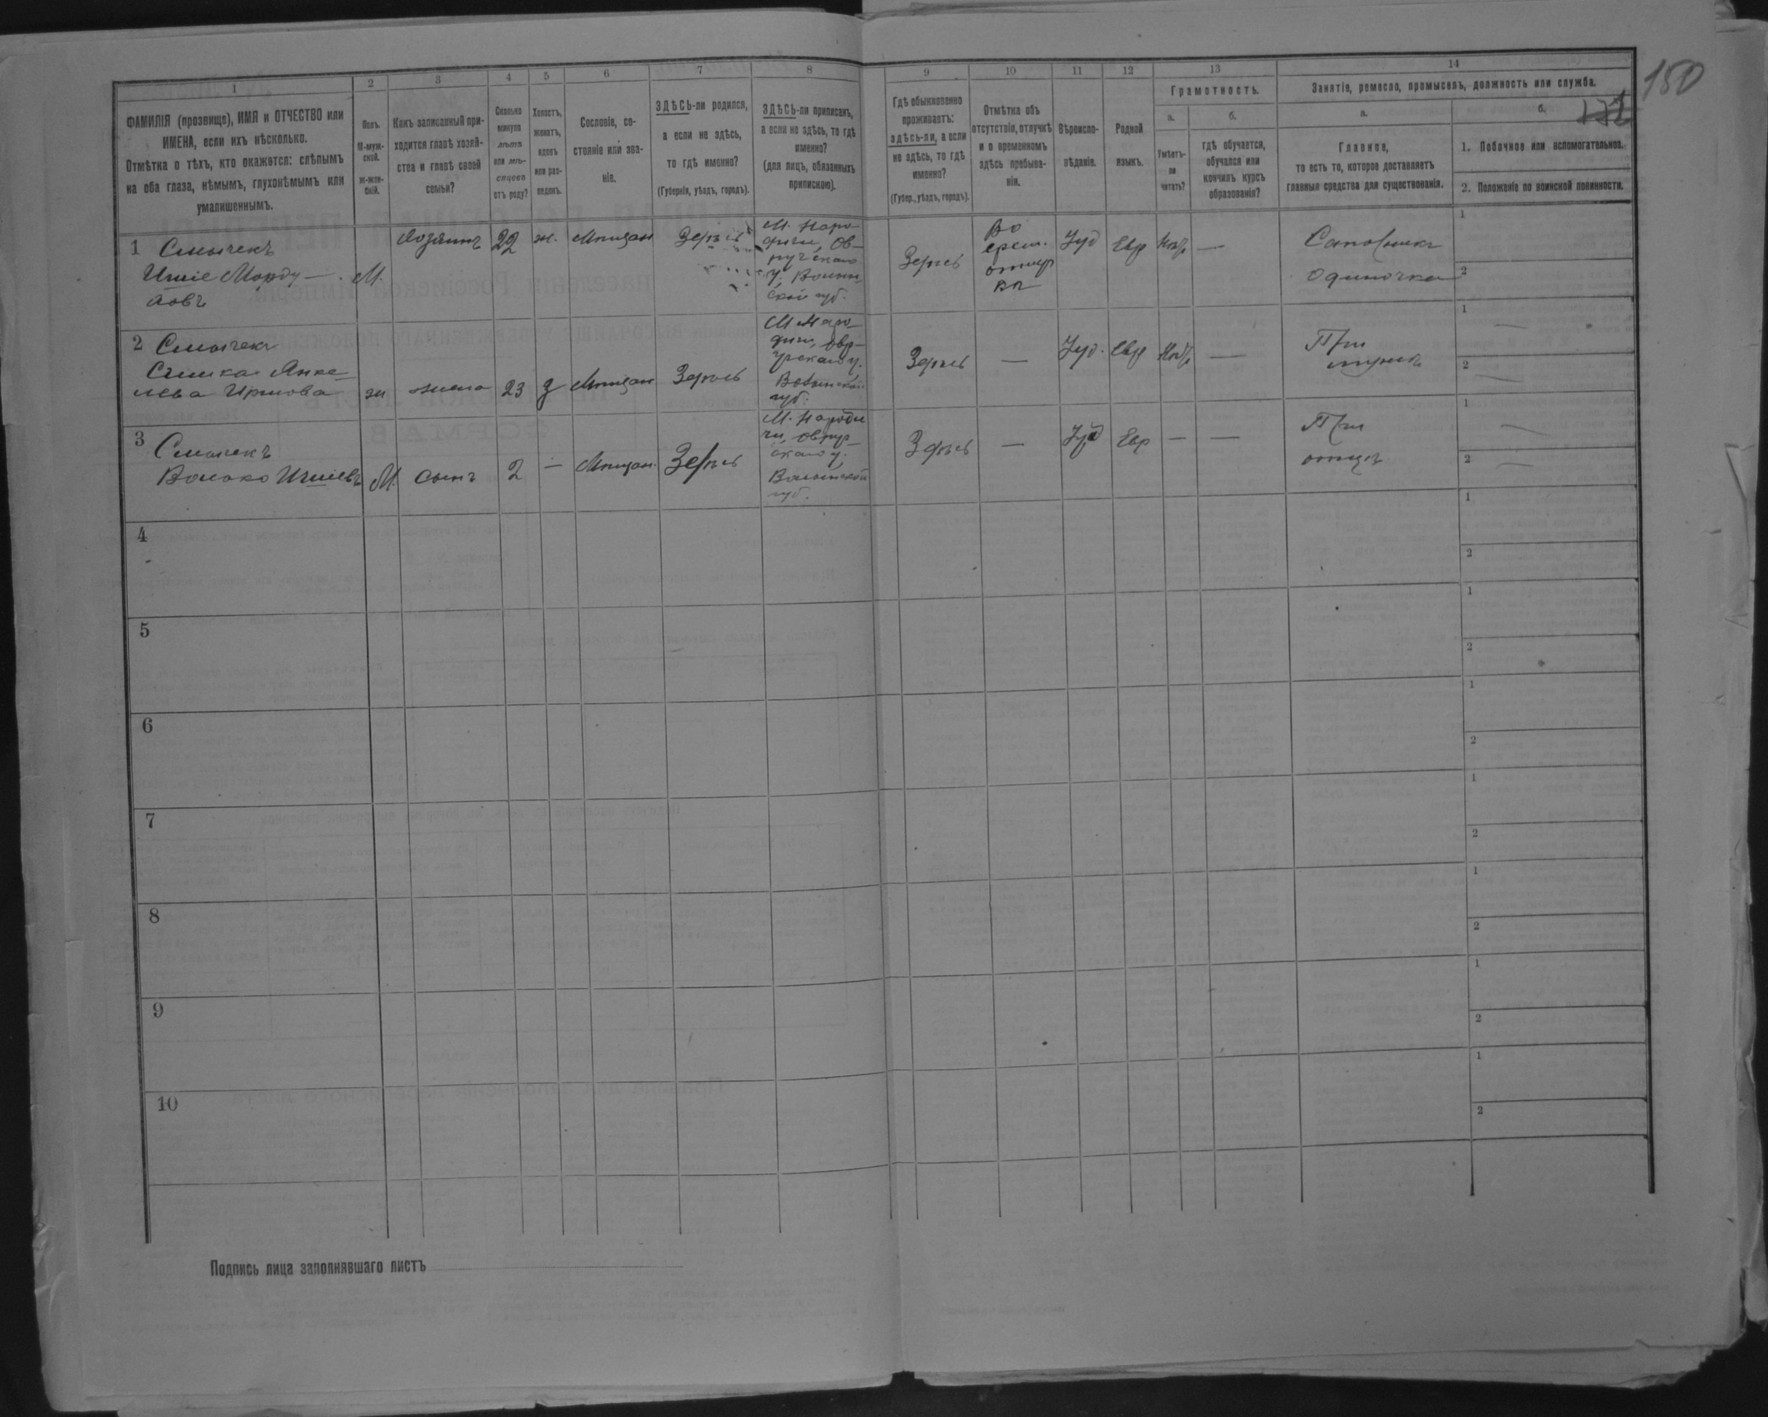 150
1
2
3
4
5
6
7
8
9
10
11
12
13
14
ФАМИЛІЯ (прозвище), ИМЯ и ОТЧЕСТВО или
ИМЕНА, если ихъ нѣсколько.
Отмѣтка о тѣхъ, кто окажется: слѣпымъ
на оба глаза, нѣмымъ, глухонѣмымъ или
умалишеннымъ.
Полъ.
М-муж-
ской.
ж-жен-
скій.
Какъ записанный при-
ходится главѣ хозяй-
ства и главѣ своей
семьи?
Сколько
минуло
лѣтъ
или мѣ-
сяцевъ
отъ роду?
Холостъ,
женатъ,
вдовъ
или раз-
веденъ.
Сословіе, со-
стояніе или зва-
ніе.
ЗДѢСЬ-ли родился,
а если не здѣсь,
то гдѣ именно?
(Губернія, уѣздъ, городъ).
ЗДѢСЬ-ли приписанъ,
а если не здѣсь, то гдѣ
именно?
(для лицъ, обязанныхъ
припискою).
Гдѣ обыкновенно
проживаетъ:
здѣсь-ли, а если
не здѣсь, то гдѣ
именно?
(Губер., уѣздъ, городъ).
Отмѣтка объ
отсутствіи, отлучкѣ
и о временномъ
здѣсь пребыва-
ніи.
Вѣроиспо-
вѣданіе.
Родной
языкъ.
Грамотность.
а.
Умѣетъ-
ли
читать?
б.
гдѣ обучается,
обучался или
кончилъ курсъ
образованія?
Занятіе, ремесло, промыселъ, должность или служба.
а.
Главное,
то есть то, которое доставляетъ
главныя средства для существованія.
б.
1. Побочное или вспомогательное.
2. Положеніе по воинской повинности.
1 Смычекъ
М.
Хозяинъ
22
ж.
Мѣщан
Здѣсь
М. Наро-
дичи, Ов-
ручскаго
у. Волын-
ской губ.
Здѣсь
Во
Іуд
Евр
Сапожникъ
одиночка
1
2
2 Смычекъ
жена
23
Мѣщан
Здѣсь
Волынской
губ.
Здѣсь
—
Іуд.
Евр
—
При
мужѣ
1
—
2
—
3
Смычекъ
М.
сынъ
2
—
Мѣщан
Здѣсь
М. Народи
чи, Овруч-
скаго у.
Волынской
губ.
Здѣсь
—
Іуд
Евр
—
—
При
отцѣ
1
—
2
—
4
1
2
5
1
2
6
1
2
7
1
2
8
1
2
9
1
2
10
1
2
Подпись лица заполнявшаго листъ